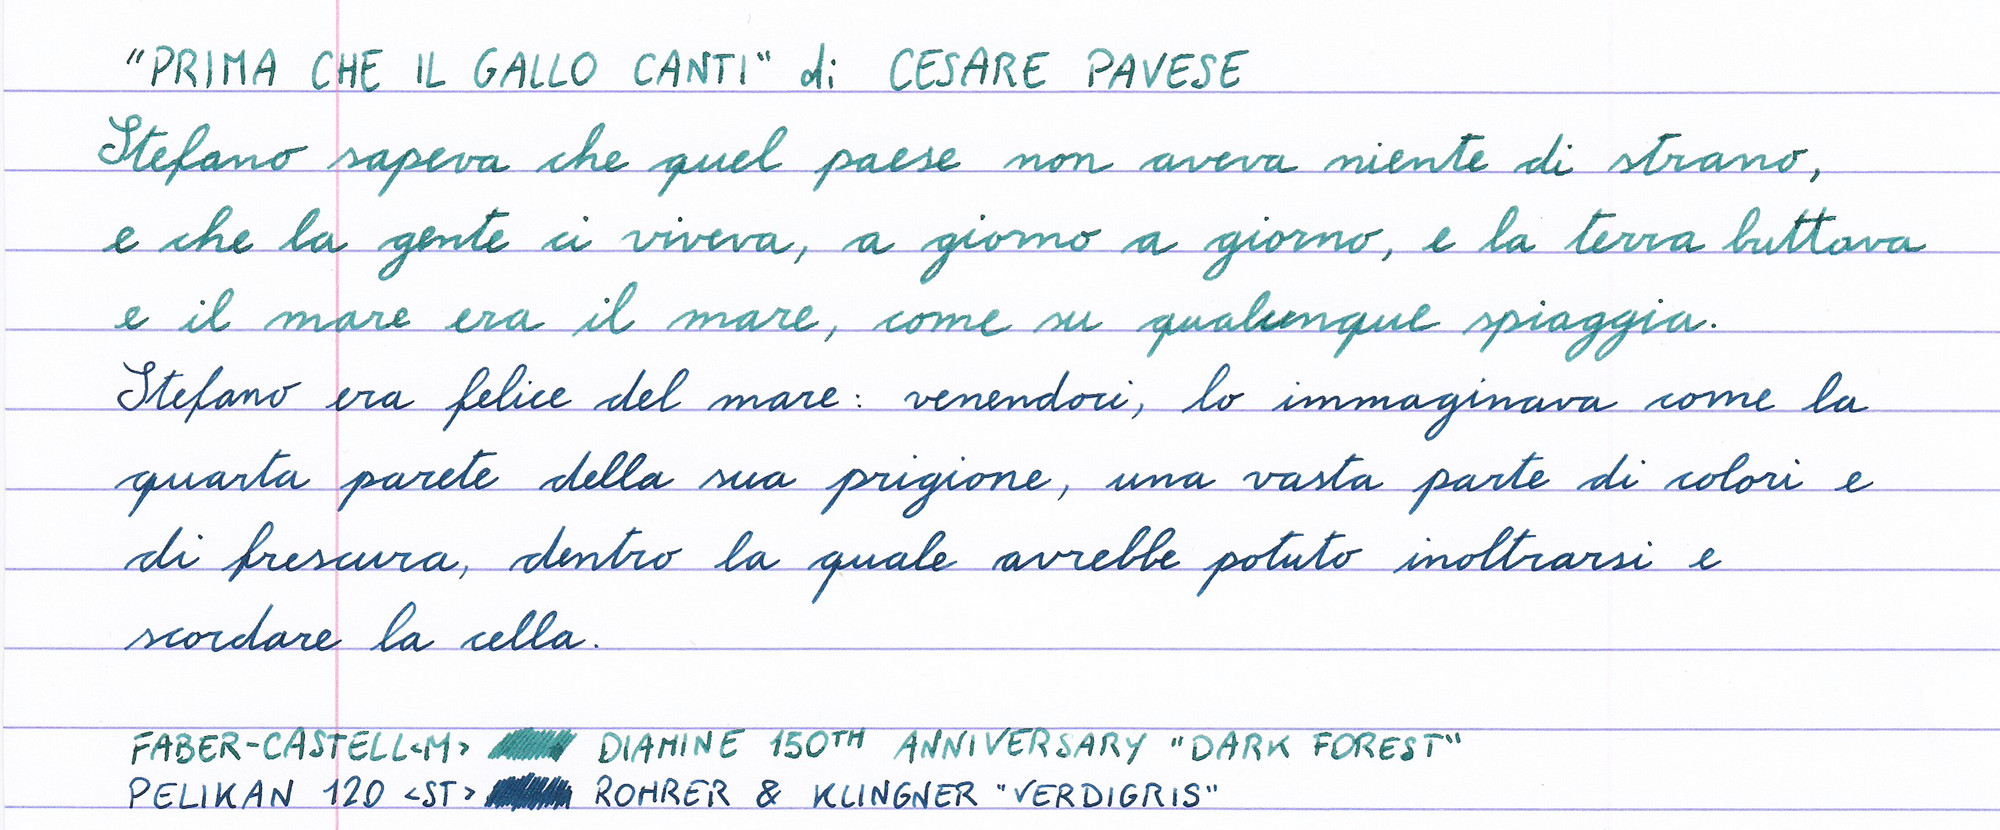 "PRIMA CHE IL GALLO CANTI" di CESARE PAVESE
Stefano sapeva che quel paese non aveva niente di strano,
e che la gente ci viveva, a giorno a giorno, e la terra buttava
e il mare era il mare, come su qualunque spiaggia.
Stefano era felice del mare: venendoci, lo immaginava come la
quarta parete della sua prigione, una vasta parte di colori e
di frescura, dentro la quale avrebbe potuto inoltrarsi e
scordare la cella.
FABER-CASTELL <M> DIAMINE 150TH ANNIVERSARY "DARK FOREST"
PELIKAN 120 <ST> ROHRER & KLINGNER "VERDIGRIS"